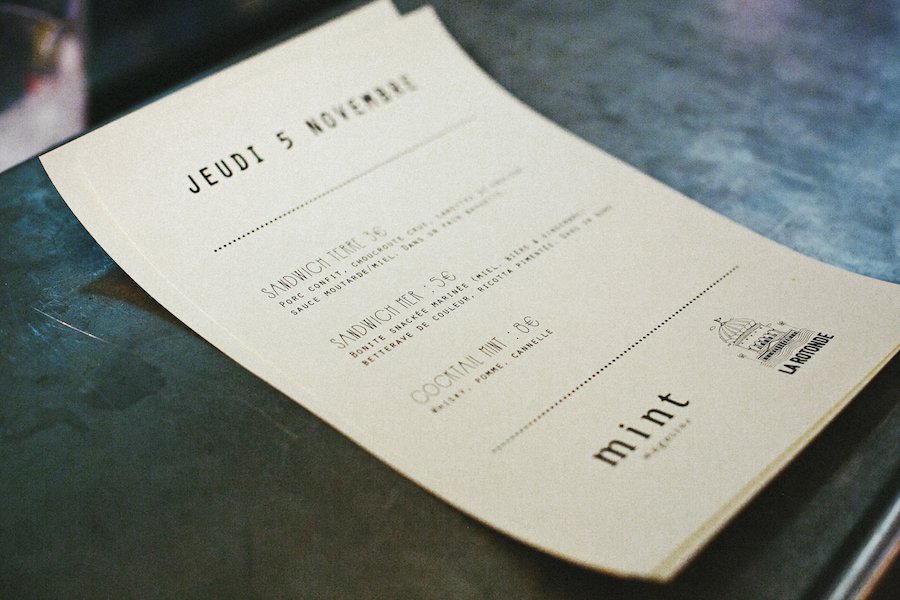 JEUDI 5 NOVEMBRE
SANDWICH TERRE 3€
PORC CONFIT, CHOUCROUTE CRUE, CAROTTES
SAUCE MOUTARDE/MIEL. DANS UN PAIN BAGUETTE.
SANDWICH MER : 5€
BONITE SNACKÉE MARINÉE (MIEL, BIÈRE & GINGEMBRE),
BETTERAVE DE COULEUR, RICOTTA PIMENTÉE. DANS UN BUNS
COCKTAIL MINT : 8€
WHISKY, POMME, CANNELLE
mint
magazine
LA ROTONDE